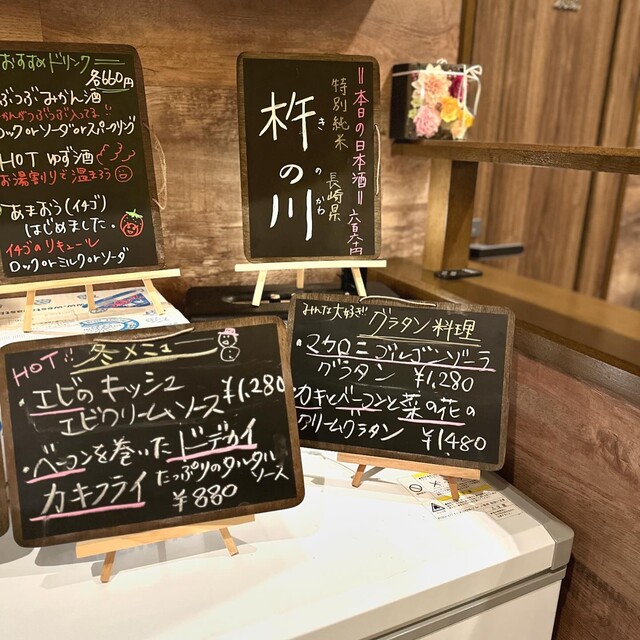 おすすめドリンク
各660円
つぶつぶみかん酒
ロックorソーダorスパークリング
HOT ゆず酒
お湯割りで温まろう
あまおう(イチゴ)
はじめました
イチゴのリキュール
ロックorミルクorソーダ
=本日の日本酒= 六百六十円
特別純米 長崎県
杵の川
きのかわ
HOT!! 冬メニュー
・エビのキッシュ
エビクリームソース ¥1,280
・ベーコンを巻いたドデカイ
カキフライ たっぷりのタルタル
ソース
¥880
みんな大好き!! グラタン料理
・マカロニゴルゴンゾーラ
グラタン ¥1,280
・カキとベーコンと菜の花の
クリームグラタン ¥1480